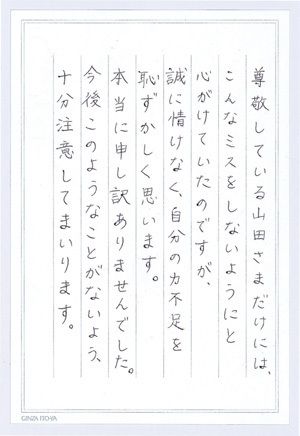 尊敬している山田さまだけには、
こんなミスをしないようにと
心がけていたのですが、
誠に情けなく、自分の力不足を
恥ずかしく思います。
本当に申し訳ありませんでした。
今後このようなことがないよう、
十分注意してまいります。
GINZA ITO-YA